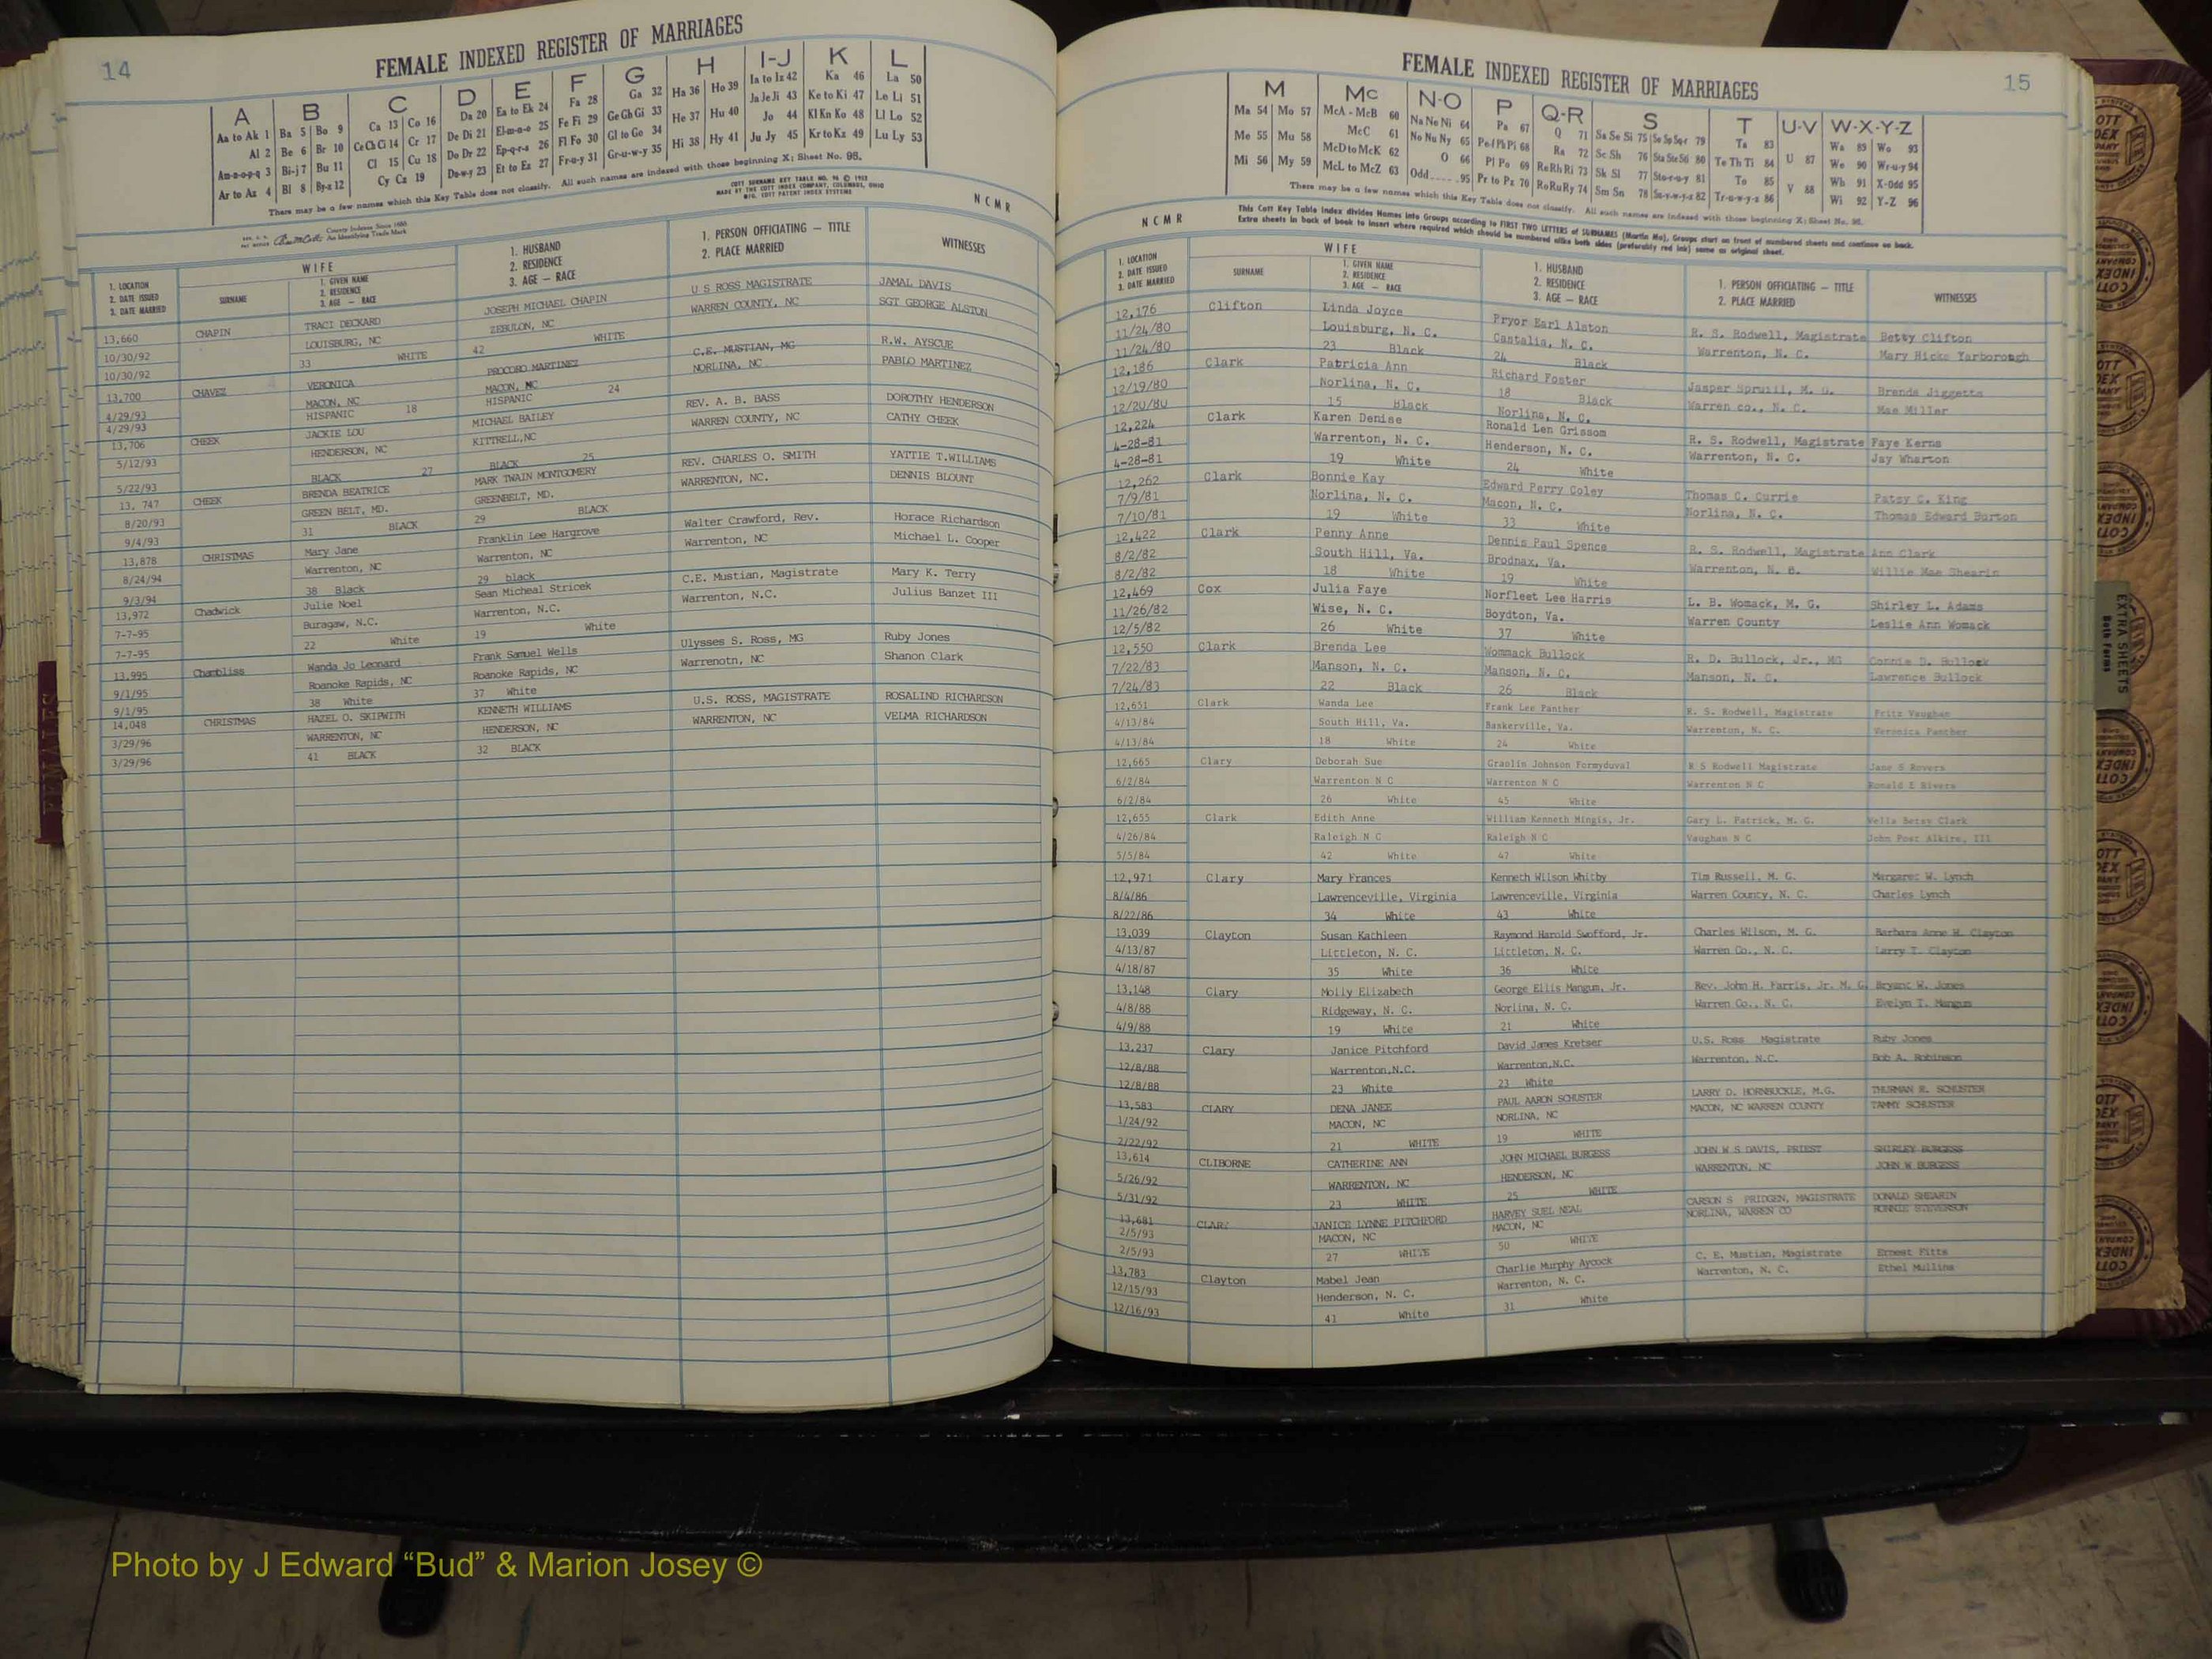 14
FEMALE INDEXED REGISTER OF MARRIAGES
A B C D E F G H I-J K L
Aa to Ak 1 Ba 5 Bo 9 Ca 13 Co 16 Da 20 Ea to Ek 24 Fa 28 Ga 32 Ha 36 Ho 39 Ia to Iz 42 Ka 46 La 50
Al 2 Be 6 Br 10 Ce Ch Ci 14 Cr 17 De Di 21 El-m-n-o 25 Fe Fi 29 Ge Gh Gi 33 He 37 Hu 40 Ja Je Ji 43 Ke to Ki 47 Le Li 51
Am-n-o-p-q 3 Bi-j 7 Bu 11 Cl 15 Cu 18 Do Dr 22 Ep-q-r-s 26 Fl Fo 30 Gl to Go 34 Hi 38 Hy 41 Jo 44 Kl Kn Ko 48 Ll Lo 52
Ar to Az 4 Bl 8 By-z 12 Cy Cz 19 Du-w-y 23 Et to Ez 27 Fr-u-y 31 Gr-u-w-y 35 Ju Jy 45 Kr to Kz 49 Lu Ly 53
There may be a few names which this Key Table does not classify. All such names are indexed with those beginning X; Sheet No. 95.
COTT SURNAME KEY TABLE NO. 96 © 1953
MADE BY THE COTT INDEX COMPANY, COLUMBUS, OHIO
MFG. COTT PATENT INDEX SYSTEMS
County Indexes Since 1888
An Identifying Trade Mark
NCMR
1. LOCATION
2. DATE ISSUED
3. DATE MARRIED
WIFE
SURNAME
1. GIVEN NAME
2. RESIDENCE
3. AGE — RACE
1. HUSBAND
2. RESIDENCE
3. AGE — RACE
1. PERSON OFFICIATING — TITLE
2. PLACE MARRIED
WITNESSES
13,660 CHAPIN TRACI DECKARD JOSEPH MICHAEL CHAPIN U S ROSS MAGISTRATE JAMAL DAVIS
10/30/92 LOUISBURG, NC ZEBULON, NC WARREN COUNTY, NC SGT GEORGE ALSTON
10/30/92 33 WHITE 42 WHITE
13,700 CHAVEZ VERONICA PROCORO MARTINEZ C.E. MUSTIAN, MG R.W. AYSCUE
4/29/93 MACON, NC MACON, NC NORLINA, NC PABLO MARTINEZ
4/29/93 HISPANIC 18 HISPANIC 24
13,706 CHEEK JACKIE LOU MICHAEL BAILEY REV. A. B. BASS DOROTHY HENDERSON
5/12/93 HENDERSON, NC KITTRELL,NC WARREN COUNTY, NC CATHY CHEEK
5/22/93 BLACK 27 BLACK 25
13, 747 CHEEK BRENDA BEATRICE MARK TWAIN MONTGOMERY REV. CHARLES O. SMITH YATTIE T.WILLIAMS
8/20/93 GREEN BELT, MD. GREENBELT, MD. WARRENTON, NC. DENNIS BLOUNT
9/4/93 31 BLACK 29 BLACK
13,878 CHRISTMAS Mary Jane Franklin Lee Hargrove Walter Crawford, Rev. Horace Richardson
8/24/94 Warrenton, NC Warrenton, NC Warrenton, NC Michael L. Cooper
9/3/94 38 Black 29 black
13,972 Chadwick Julie Noel Sean Micheal Stricek C.E. Mustian, Magistrate Mary K. Terry
7-7-95 Buragaw, N.C. Warrenton, N.C. Warrenton, N.C. Julius Banzet III
7-7-95 22 White 19 White
13,995 Chambliss Wanda Jo Leonard Frank Samuel Wells Ulysses S. Ross, MG Ruby Jones
9/1/95 Roanoke Rapids, NC Roanoke Rapids, NC Warrenotn, NC Shanon Clark
9/1/95 38 White 37 White
14,048 CHRISTMAS HAZEL O. SKIPWITH KENNETH WILLIAMS U.S. ROSS, MAGISTRATE ROSALIND RICHARDSON
3/29/96 WARRENTON, NC HENDERSON, NC WARRENTON, NC VELMA RICHARDSON
3/29/96 41 BLACK 32 BLACK
FEMALES
15
FEMALE INDEXED REGISTER OF MARRIAGES
M Mc N-O P Q-R S T U-V W-X-Y-Z
Ma 54 Mo 57 McA - McB 60 Na Ne Ni 64 Pa 67 Q 71 Sa Se Si 75 So Sp Sq-r 79 Ta 83 U 87 Wa 89 Wo 93
Me 55 Mu 58 McC 61 No Nu Ny 65 Pe-f Ph Pi 68 Ra 72 Sc Sh 76 Sta Ste Sti 80 Te Th Ti 84 V 88 We 90 Wr-u-y 94
Mi 56 My 59 McD to McK 62 O 66 Pl Po 69 Re Rh Ri 73 Sk Sl 77 Sto-r-u-y 81 To 85 Wh 91 X-Odd 95
McL to McZ 63 Odd 95 Pr to Pz 70 Ro Ru Ry 74 Sm Sn 78 Su-v-w-y-z 82 Tr-u-w-y-z 86 Wi 92 Y-Z 96
There may be a few names which this Key Table does not classify. All such names are indexed with those beginning X; Sheet No. 95.
This Cott Key Table Index divides Names into Groups according to FIRST TWO LETTERS of SURNAMES (Martin Ma), Groups start on front of numbered sheets and continue on back.
Extra sheets in back of book to insert where required which should be numbered alike both sides (preferably red ink) same as original sheet.
NCMR
1. LOCATION
2. DATE ISSUED
3. DATE MARRIED
WIFE
SURNAME
1. GIVEN NAME
2. RESIDENCE
3. AGE — RACE
1. HUSBAND
2. RESIDENCE
3. AGE — RACE
1. PERSON OFFICIATING — TITLE
2. PLACE MARRIED
WITNESSES
12,176 Clifton Linda Joyce Pryor Earl Alston R. S. Rodwell, Magistrate Betty Clifton
11/24/80 Louisburg, N. C. Castalia, N. C. Warrenton, N. C. Mary Hicks Yarborough
11/24/80 23 Black 24 Black
12,186 Clark Patricia Ann Richard Foster Jasper Spruill, M. G. Brenda Jiggetts
12/19/80 Norlina, N. C. 18 Black Warren co., N. C. Mae Miller
12/20/80 15 Black Norlina, N. C.
12,224 Clark Karen Denise Ronald Len Grissom R. S. Rodwell, Magistrate Faye Kerns
4-28-81 Warrenton, N. C. Henderson, N. C. Warrenton, N. C. Jay Wharton
4-28-81 19 White 24 White
12,262 Clark Bonnie Kay Edward Perry Coley Thomas C. Currie Patsy C. King
7/9/81 Norlina, N. C. Macon, N. C. Norlina, N. C. Thomas Edward Burton
7/10/81 19 White 33 White
12,422 Clark Penny Anne Dennis Paul Spence R. S. Rodwell, Magistrate Ann Clark
8/2/82 South Hill, Va. Brodnax, Va. Warrenton, N. C. Willie Mae Shearin
8/2/82 18 White 19 White
12,469 Cox Julia Faye Norfleet Lee Harris L. B. Womack, M. G. Shirley L. Adams
11/26/82 Wise, N. C. Boydton, Va. Warren County Leslie Ann Womack
12/5/82 26 White 37 White
12,550 Clark Brenda Lee Wommack Bullock R. D. Bullock, Jr., MG Connie D. Bullock
7/22/83 Manson, N. C. Manson, N. C. Manson, N. C. Lawrence Bullock
7/24/83 22 Black 26 Black
12,651 Clark Wanda Lee Frank Lee Panther R. S. Rodwell, Magistrate Fritz Vaughan
4/13/84 South Hill, Va. Baskerville, Va. Warrenton, N. C. Veronica Panther
4/13/84 18 White 24 White
12,665 Clary Deborah Sue Graolin Johnson Formyduval R S Rodwell Magistrate Jane S Rovers
6/2/84 Warrenton N C Warrenton N C Warrenton N C Ronald E Rivers
6/2/84 26 White 45 White
12,655 Clark Edith Anne William Kenneth Mingis, Jr. Gary L. Patrick, M. G. Velle Betsy Clark
4/26/84 Raleigh N C Raleigh N C Vaughan N C John Post Alkire, III
5/5/84 42 White 47 White
12,971 Clary Mary Frances Kenneth Wilson Whitby Tim Russell, M. G. Margaret W. Lynch
8/4/86 Lawrenceville, Virginia Lawrenceville, Virginia Warren County, N. C. Charles Lynch
8/22/86 34 White 43 White
13,039 Clayton Susan Kathleen Raymond Harold Swofford, Jr. Charles Wilson, M. G. Barbara Anne H. Clayton
4/13/87 Littleton, N. C. Littleton, N. C. Warren Co., N. C. Larry T. Clayton
4/18/87 35 White 36 White
13,148 Clary Molly Elizabeth George Ellis Mangum, Jr. Rev. John H. Farris, Jr. M. G. Bryant W. Jones
4/8/88 Ridgeway, N. C. Norlina, N. C. Warren Co., N. C. Evelyn T. Mangum
4/9/88 19 White 21 White
13,237 Clary Janice Pitchford David James Kretser U.S. Ross Magistrate Ruby Jones
12/8/88 Warrenton,N.C. Warrenton,N.C. Warrenton, N.C. Bob A. Robinson
12/8/88 23 White 23 White
13,583 CLARY DENA JANEE PAUL AARON SCHUSTER LARRY D. HORNBUCKLE, M.G. THURMAN R. SCHUSTER
1/24/92 MACON, NC NORLINA, NC MACON, NC WARREN COUNTY TAMMY SCHUSTER
2/22/92 21 WHITE 19 WHITE
13,614 CLIBORNE CATHERINE ANN JOHN MICHAEL BURGESS JOHN W S DAVIS, PRIEST SHIRLEY BURGESS
5/26/92 WARRENTON, NC HENDERSON, NC WARRENTON, NC JOHN W BURGESS
5/31/92 23 WHITE 25 WHITE
13,681 CLARY JANICE LYNNE PITCHFORD HARVEY SUEL NEAL CARSON S PRIDGEN, MAGISTRATE DONALD SHEARIN
2/5/93 MACON, NC MACON, NC NORLINA, WARREN CO RONNIE STEVERSON
2/5/93 27 WHITE 50 WHITE
13,783 Clayton Mabel Jean Charlie Murphy Aycock C. E. Mustian, Magistrate Ernest Fitts
12/15/93 Henderson, N. C. Warrenton, N. C. Warrenton, N. C. Ethel Mullins
12/16/93 41 White 31 White
EXTRA SHEETS
Both Forms
Photo by J Edward “Bud” & Marion Josey ©